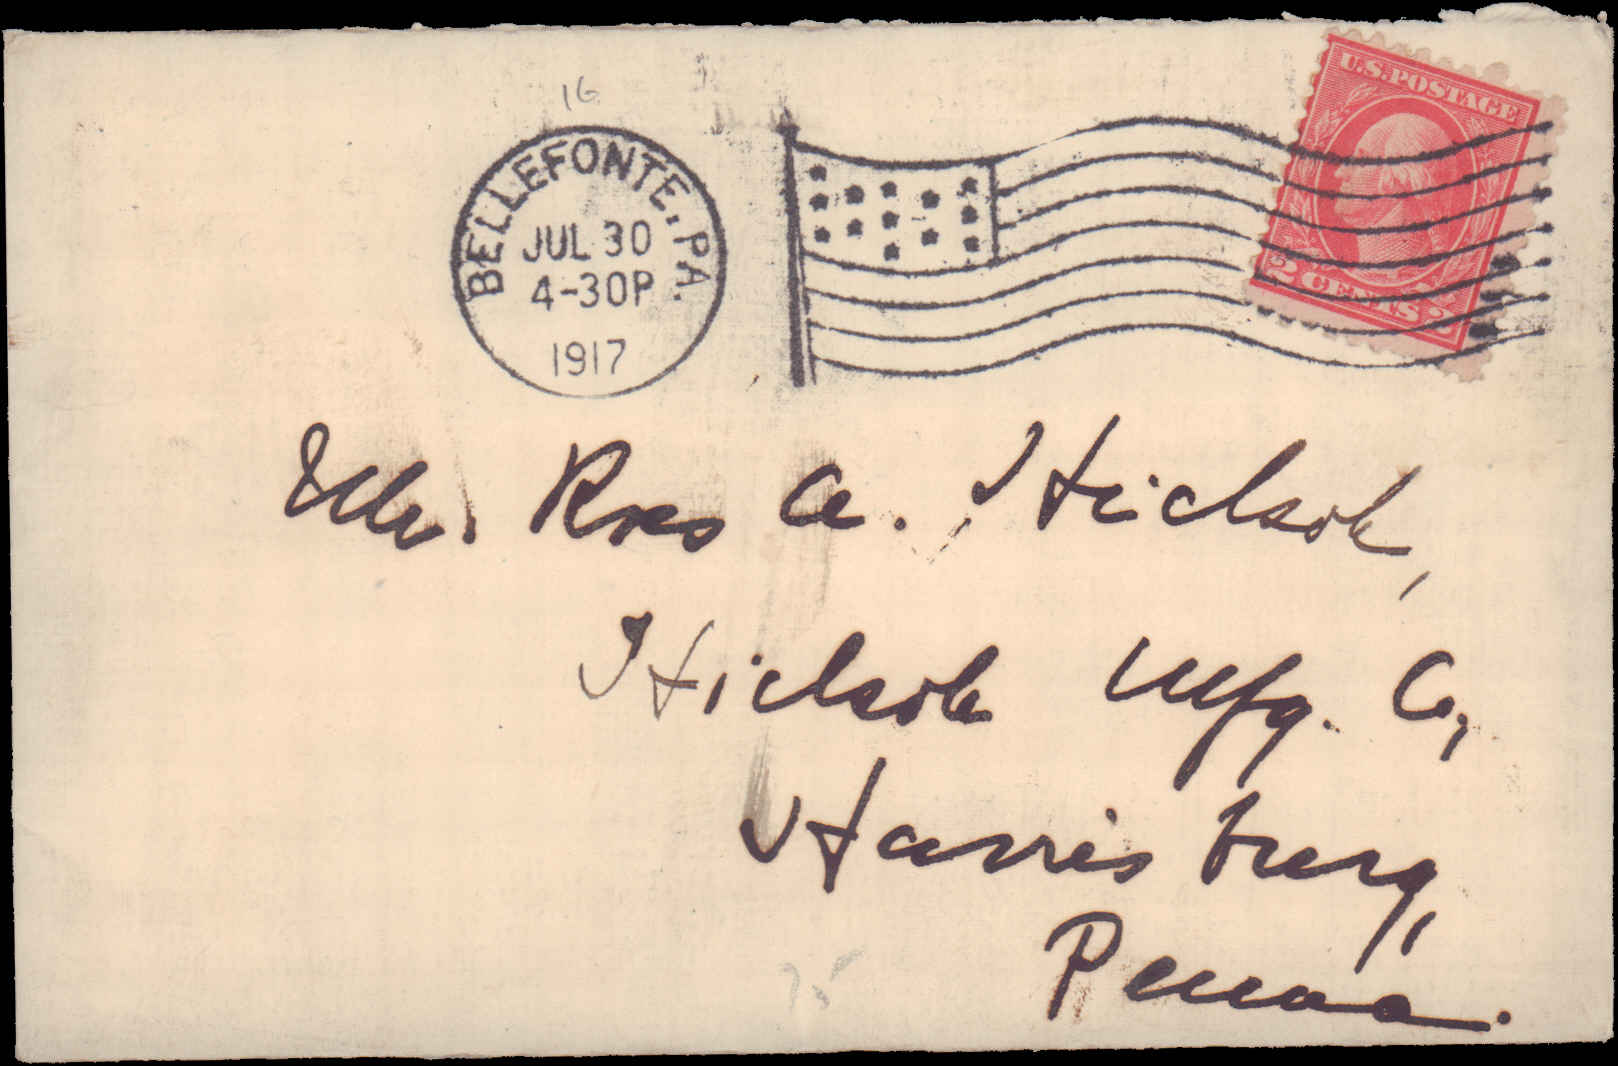 16
U.S. POSTAGE
2 CENTS 2
BELLEFONTE, PA.
JUL 30
4-30P
1917
Mr. Ross A. Hickok,
Hickok Mfg. Co,
Harrisburg,
Penna.
75